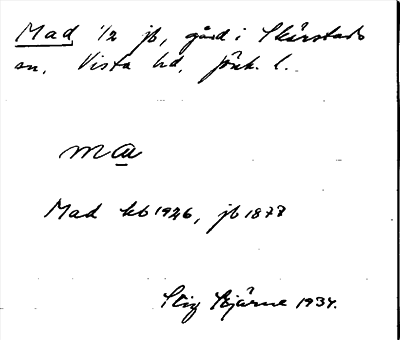 Mad 1/2 jb, gård i Skärstads
sn, Vista hd, Jönk. l.
ma
Mad kb 1926, jb 1878
Stig Bjärne 1934.